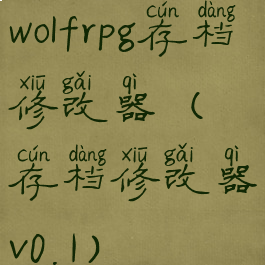 wolfrpg存档
修改器（
存档修改器
v0.1）